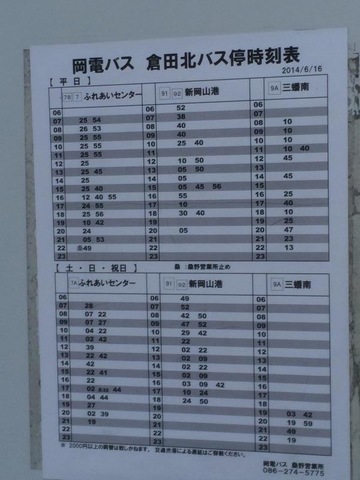 岡電バス 倉田北バス停時刻表
2014/6/16
【 平 日 】
7B 7 ふれあいセンター 91 92 新岡山港 9A 三蟠南
06 06 52 06
07 25 54 07 38 07
08 26 53 08 40 08 10
09 25 55 09 40 09 10
10 25 55 10 25 40 10 10
11 25 55 11 11 25
12 25 45 12 10 50 12 45
13 25 55 13 05 50 13
14 25 14 05 14 45
15 25 40 15 05 45 56 15
16 12 40 55 16 16 25
17 24 55 17 10 17 40
18 25 56 18 30 40 18 10
19 10 42 19 19 25
20 24 20 05 20 47
21 05 53 21 21 23
22 49 22 22 13
23 23 23
【 土 ・ 日 ・ 祝日 】
桑 桑野営業所止め
7A ふれあいセンター 91 92 新岡山港 9A 三蟠南
06 06 49 06
07 28 07 52 07
08 07 22 08 42 50 08
09 07 27 09 47 52 09
10 04 22 10 29 42 10
11 02 42 11 02 42 11
12 39 12 02 22 12
13 22 42 13 02 22 13
14 42 14 02 22 14
15 22 41 15 02 09 15
16 22 16 03 09 42 16
17 02 44 17 10 24 17
18 04 44 18 24 50 18
19 27 19 19 03 42
20 02 39 20 20 19 59
21 19 21 21 49
22 22 22 19
23 23 23
※ 2000円以上の両替は致しかねます。 交通渋滞による遅延はご容赦ください。
岡電バス 桑野営業所
086-274-5775